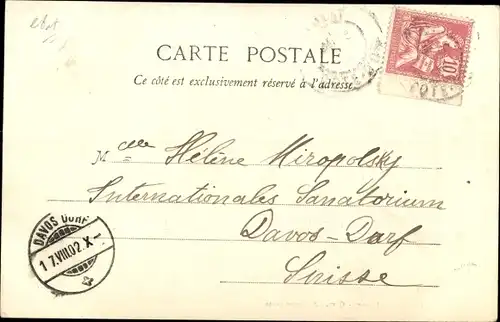 CARTE POSTALE
Ce côté est exclusivement réservé à l'adresse
10
Mlle Hélène Miropolsky
Internationales Sanatorium
Davos-Dorf
Suisse
DAVOS DORF
17.VIII.02.X-